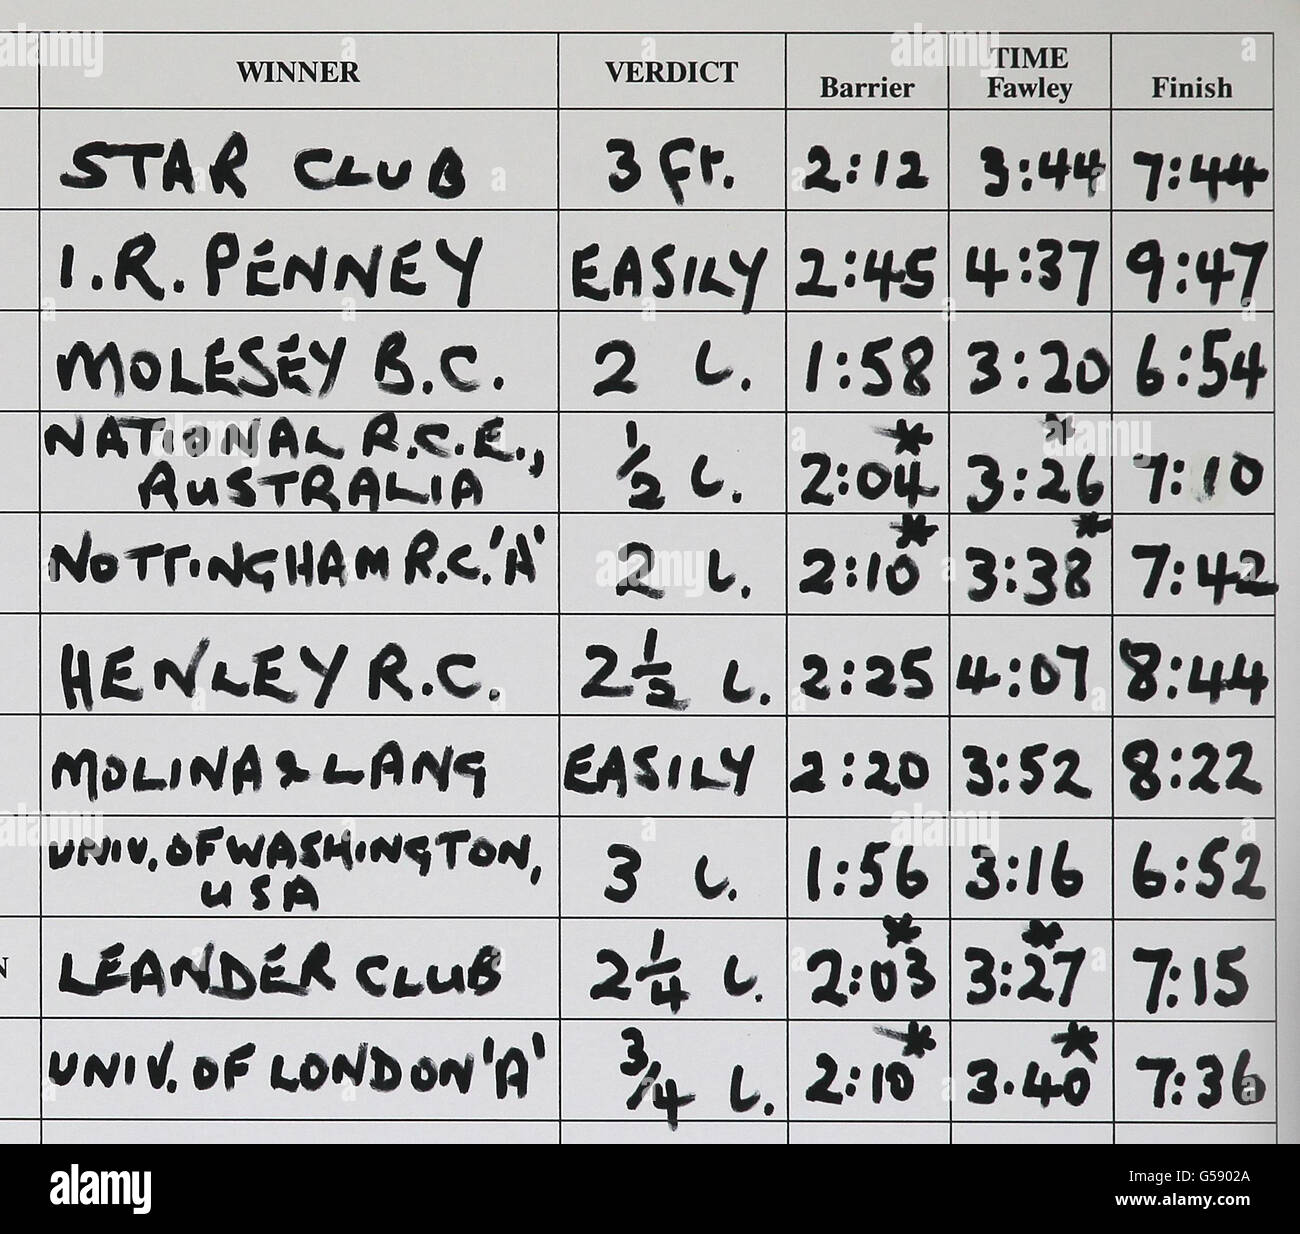 WINNER VERDICT TIME
Barrier Fawley Finish
STAR CLUB 3 Ft. 2:12 3:44 7:44
I.R. PENNEY EASILY 2:45 4:37 9:47
MOLESEY B.C. 2 L. 1:58 3:20 6:54
NATIONAL R.C.E., * *
AUSTRALIA 1/2 L. 2:04 3:26 7:10
* *
NOTTINGHAM R.C. 'A' 2 L. 2:10 3:38 7:42
HENLEY R.C. 2 1/2 L. 2:25 4:07 8:44
MOLINA & LANG EASILY 2:20 3:52 8:22
UNIV. OF WASHINGTON,
USA 3 L. 1:56 3:16 6:52
* *
N LEANDER CLUB 2 1/4 L. 2:03 3:27 7:15
* *
UNIV. OF LONDON 'A' 3/4 L. 2:10 3.40 7:36
alamy
Image ID: G5902A
www.alamy.com